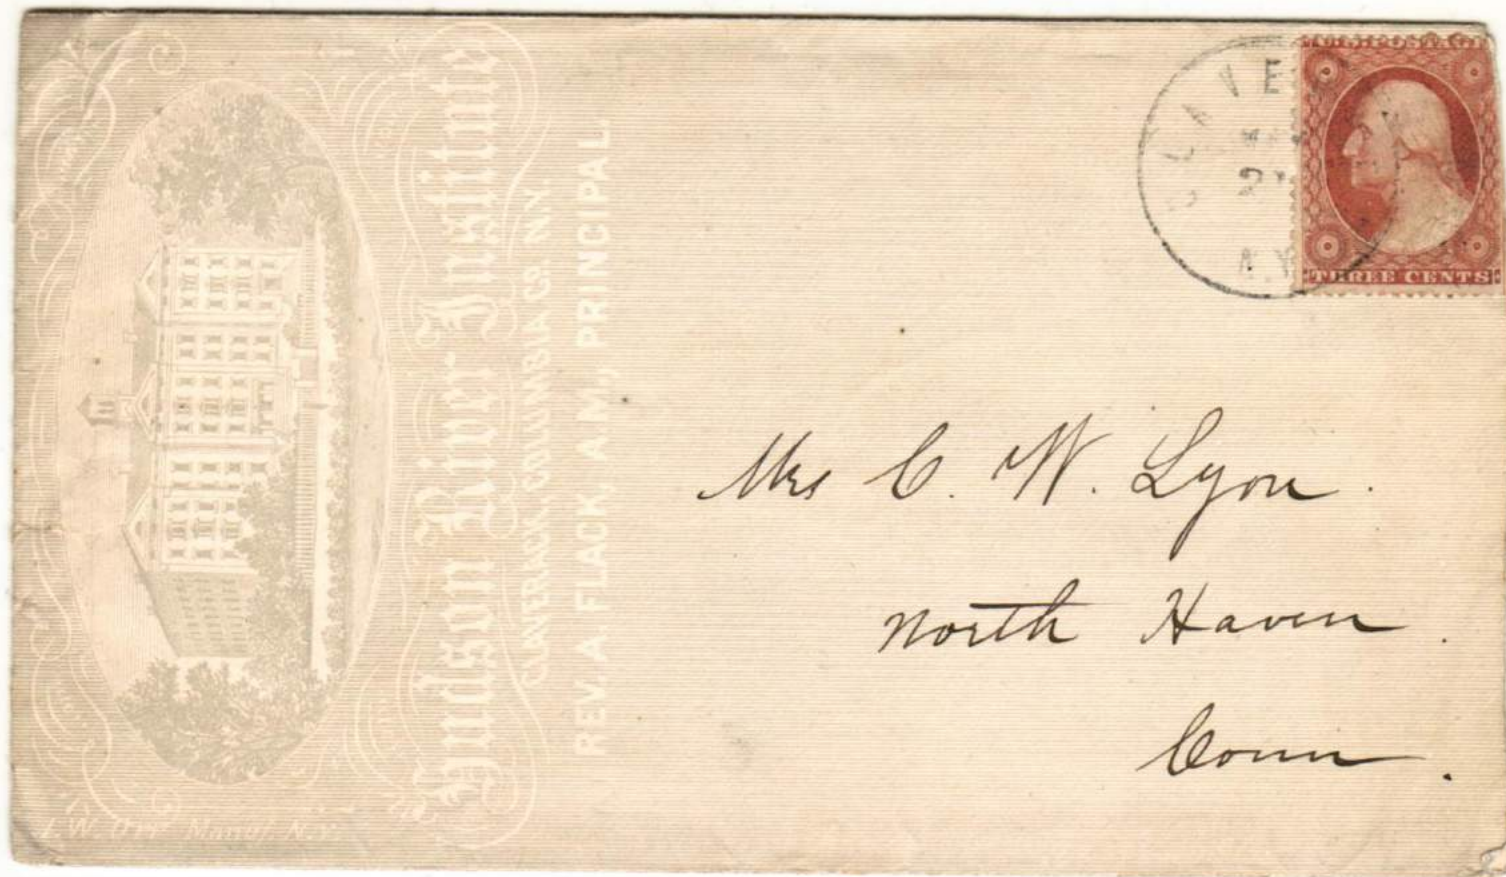 Hudson River Institute
CLAVERACK, COLUMBIA CO. N.Y.
REV. A FLACK, A.M., PRINCIPAL.
N.Y.
CLAVE
N.Y.
THREE CENTS
Mrs C. W. Lyon.
North Haven.
Conn.